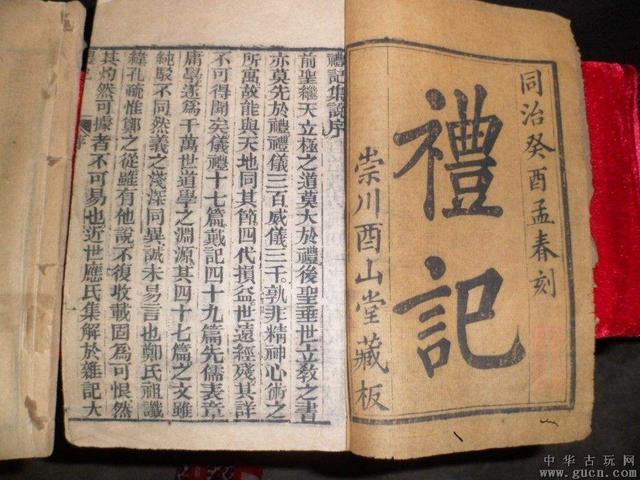 同治癸酉孟春刻
禮記
崇川酉山堂藏板
禮記集說序
前聖繼天立極之道莫大於禮後聖垂世立教之書
亦莫先於禮禮儀三百威儀三千孰非精神心術之
所寓故能與天地同其節四代損益世遠經殘其詳
不可得聞矣儀禮十七篇戴記四十九篇先儒表章
庸學遂爲千萬世道學之淵源其四十七篇之文雖
純駁不同然義之淺深同異誠未易言也鄭氏祖讖
緯孔疏惟鄭之從雖有他說不復收載固為可恨然
其灼然可據者不可易也近世應氏集解於雜記大
序
中华古玩网
www.gucn.com